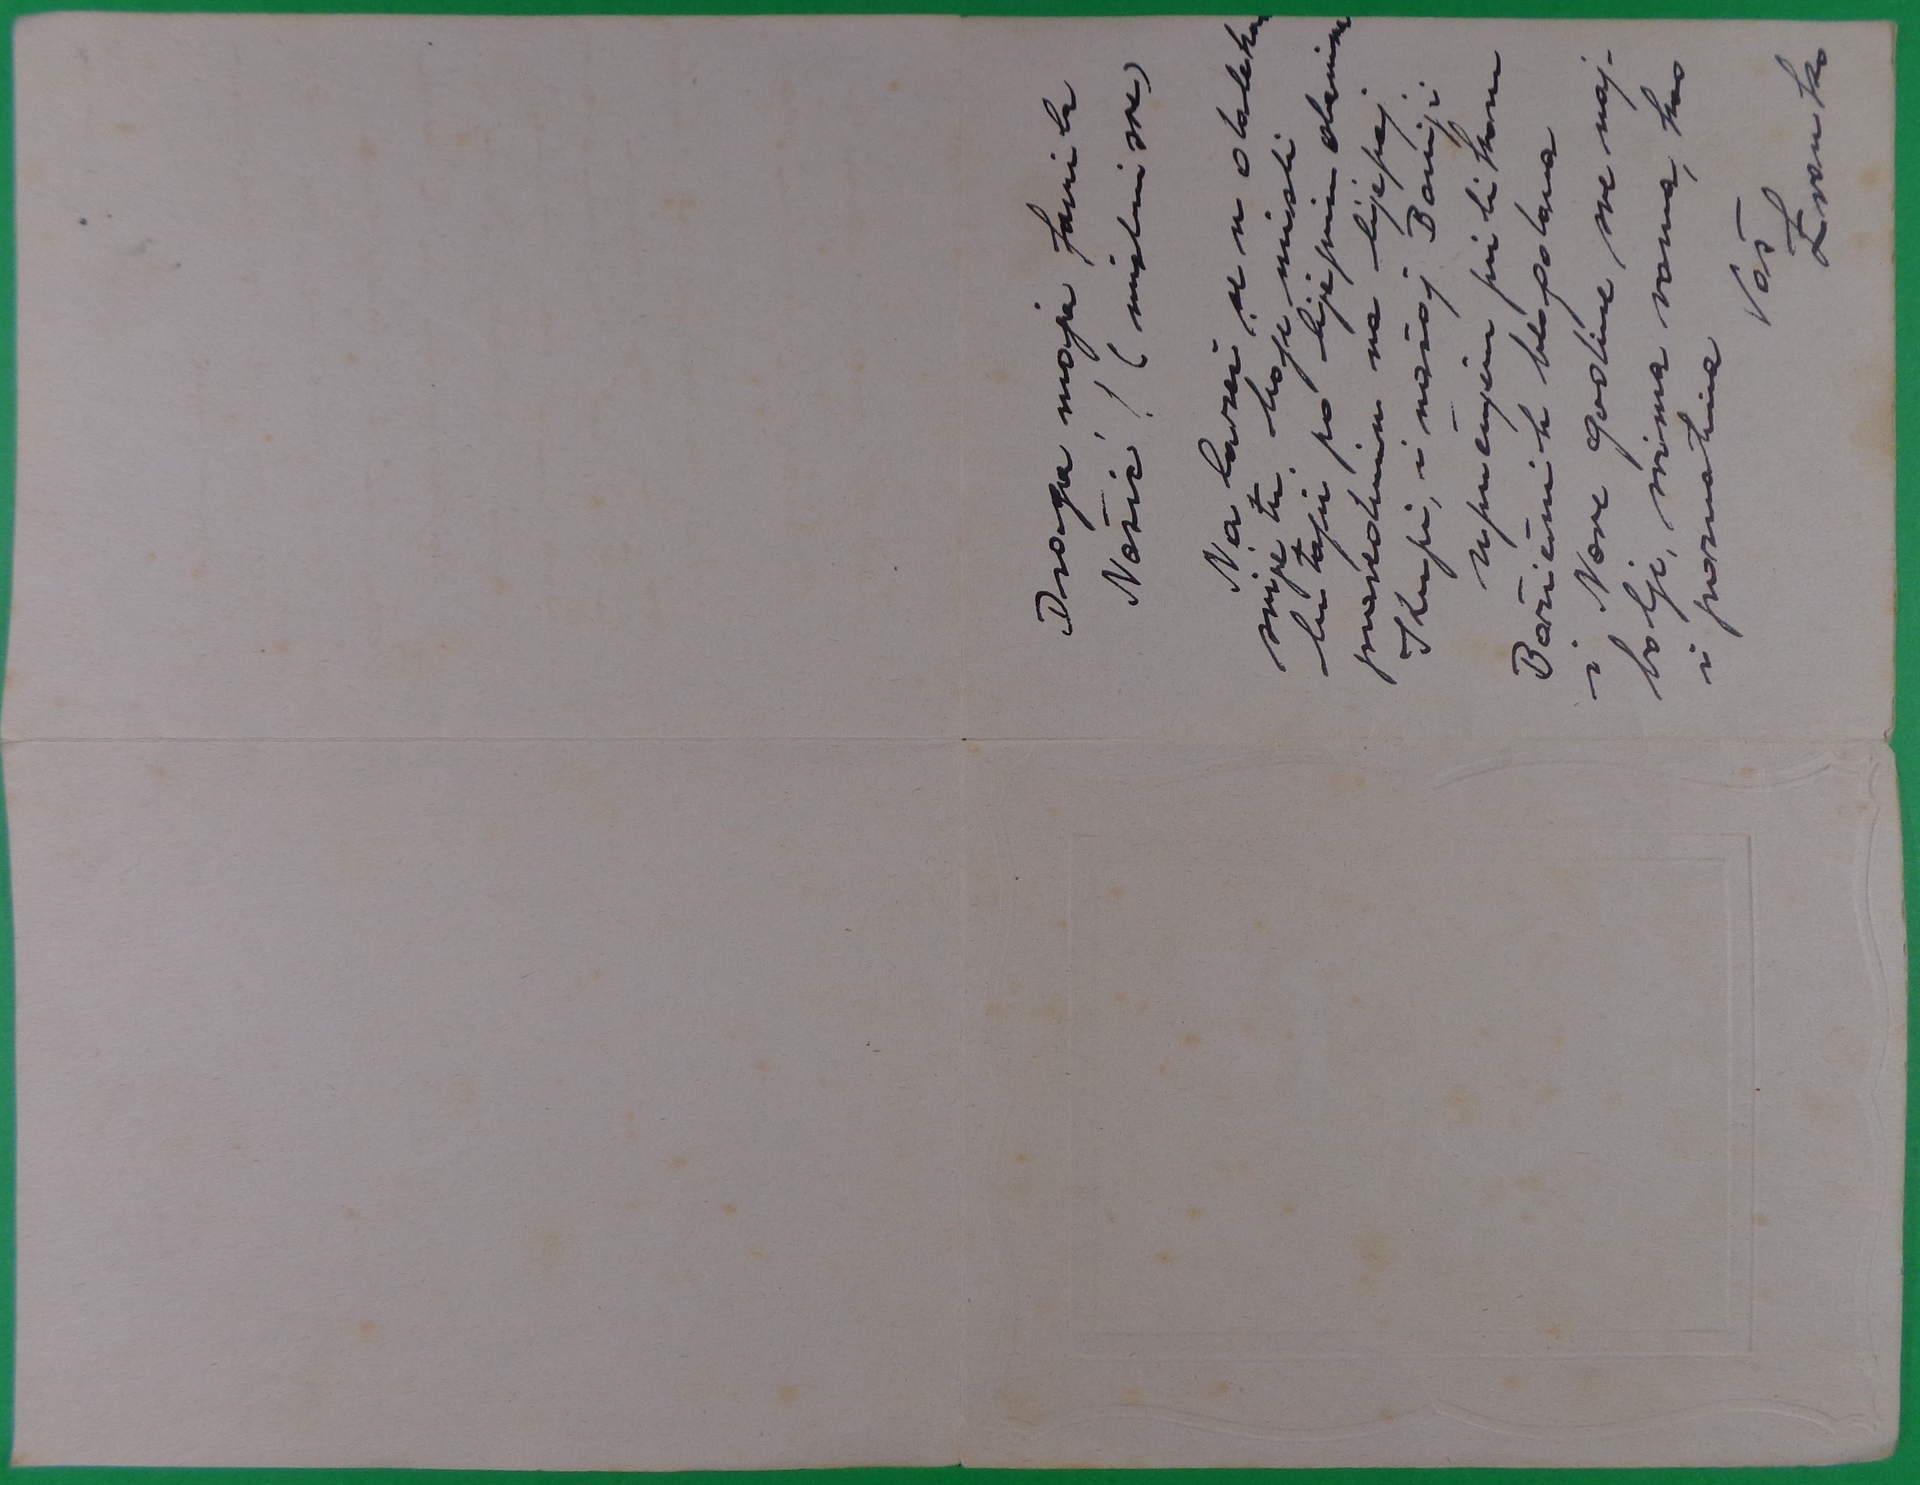 Draga moja familo
Nasić! (mislim sve)
Na barci se u daleku
svijetu, koje misli
lutaju po lijepim danima
provedenim na lijepoj
Kupi, i našoj Baniji:
upućujem prilikom
Božićnih blagdana
i Nove godine sve naj-
bolje, svima vama, kao
i poznatima
Vaš
Zvonko